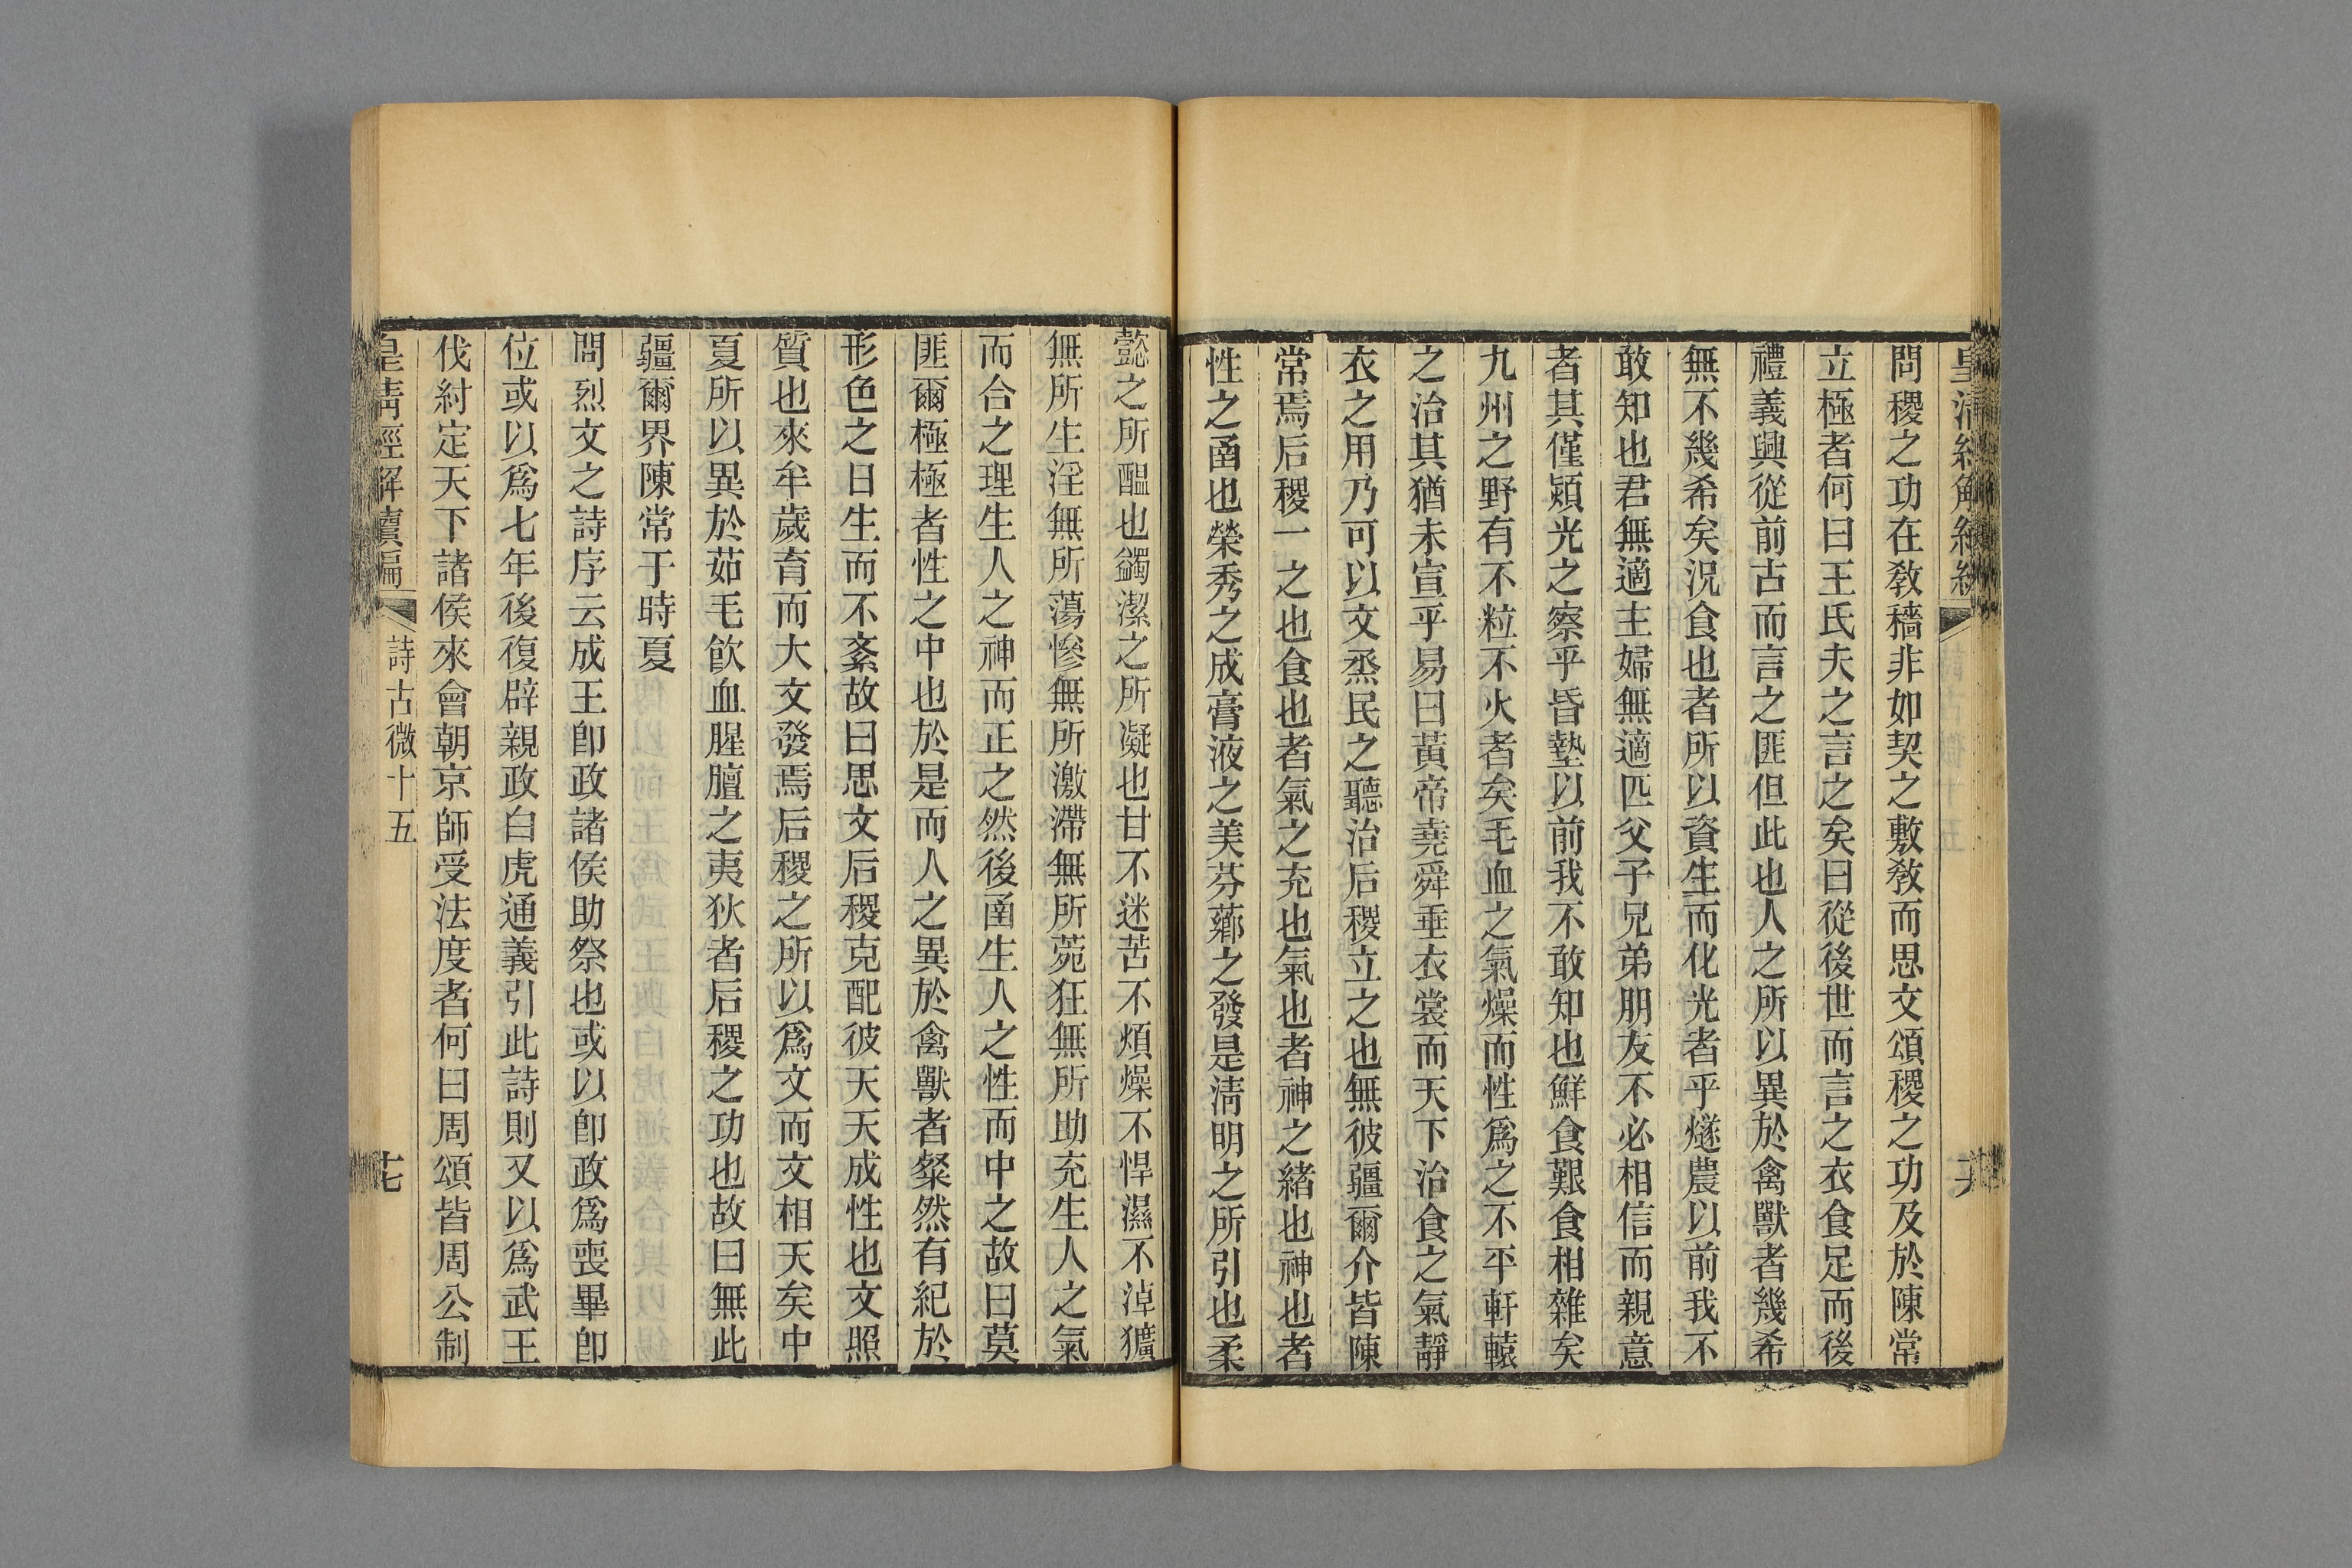 問稷之功在教穡非如契之敷教而思文頌稷之功及於陳常
立極者何曰王氏夫之言之矣曰從後世而言之衣食足而後
禮義興從前古而言之匪但此也人之所以異於禽獸者幾希
無不幾希矣況食也者所以資生而化光者乎燧農以前我不
敢知也君無適主婦無適匹父子兄弟朋友不必相信而親意
者其僅熲光之察乎昏墊以前我不敢知也鮮食艱食相雜矣
九州之野有不粒不火者矣毛血之氣燥而性爲之不平軒轅
之治其猶未宣乎易曰黃帝堯舜垂衣裳而天下治食之氣靜
衣之用乃可以文烝民之聽治后稷立之也無彼疆爾介皆陳
常焉后稷一之也食也者氣之充也氣也者神之緒也神也者
性之函也榮秀之成膏液之美芬薌之發是清明之所引也柔
懿之所醞也蠲潔之所凝也甘不迷苦不煩燥不悍濕不淖獷
無所生淫無所蕩慘無所激滯無所菀狂無所助充生人之氣
而合之理生人之神而正之然後函生人之性而中之故曰莫
匪爾極極者性之中也於是而人之異於禽獸者粲然有紀於
形色之日生而不紊故曰思文后稷克配彼天天成性也文照
質也來牟歲育而大文發焉后稷之所以爲文而文相天矣中
夏所以異於茹毛飮血腥膻之夷狄者后稷之功也故曰無此
疆爾界陳常于時夏
問烈文之詩序云成王卽政諸侯助祭也或以卽政爲喪畢卽
位或以爲七年後復辟親政白虎通義引此詩則又以爲武王
伐紂定天下諸侯來會朝京師受法度者何曰周頌皆周公制
皇清經解續編
詩古微十五